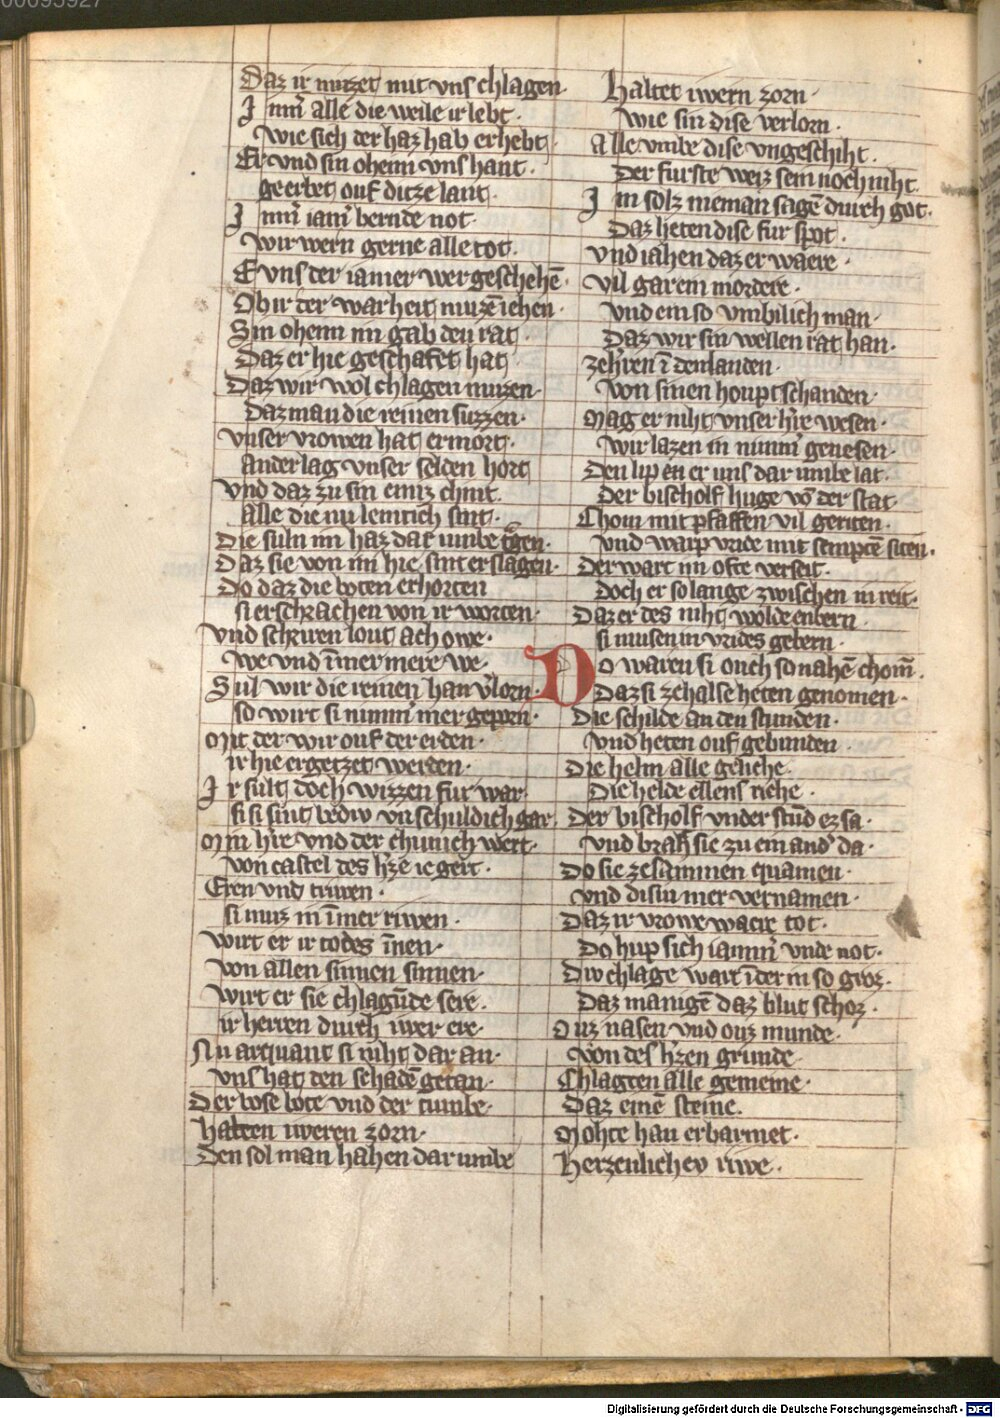 00095927
Daz ir muzet mit vns chlagen·
I mm͛ alle die weile ir lebt·
wie sich der haz hab erhebt
Er vnd sin oheim vns hant·
geerbet ouf ditze lant·
I mm͛ iam͛ bernde not·
wir wern gerne alle tot·
E vns der iamer wer geschehē·
Ob ir der warheit muzē iehen·
Sin oheim im gab den rat
Daz er hie geschafet hat
Daz wir wol chlagen muzen·
Daz man die reinen suzzen·
vnser vrowen hat ermort·
ander lag vnser selden hort
vnd daz zu sin einiz chint·
alle die nu lemtich sint·
Die suln im haz dar umbe tragen·
Daz sie von im hie sint erslagen·
Do daz die boten erhorten
si erschrachen von ir worten·
vnd schriren lout ach owe·
we vnd īmer mere we·
Sul wir die reinen han v͛lorn·
so wirt si nimm͛ mer geporn·
Mit der wir ouf der erden·
ir hie ergetzet werden·
I r sult doch wizzen fur war
si si sint bediv vnschuldich gar·
Min h͛re vnd der chunich wert·
von castel des h͛ze ie gert·
Eren vnd triwen·
si muz in īmer riwen·
wirt er ir todes īnen·
von allen sinnen sinnen·
wirt er sie chlagūde sere·
ir herren durch iwer ere·
Nu arquant si niht dar an·
vns hat den schadē getan·
Der bose bote vnd der tumbe·
halten iweren zorn·
Den sol man hahen dar umbe
haltet iwern zorn·
wie sin dise verlorn·
Alle vmbe dise vngeschiht·
Der furste weiz sein noch niht·
I m solz nieman sagē durch got·
Daz heten dise fur spot·
vnd iahen daz er waere·
vil gar ein mordere·
vnd ein so vnbilich man·
Daz wir sin wellen rat han·
zeh͛ren ī den landen·
von sinen houptschanden·
Mag er niht vnser h͛re wesen·
wir lazen in nimm͛ genesen·
Den lip en er uns dar umbe lat·
Der bischolf huge vō der stat·
Chom mit pfaffen vil geriten·
vnd warp vride mit sempftē siten·
Der wart im ofte verseit·
Doch er so lange zwischen in reit·
Daz er des niht wolde enbern·
si musen in vrides gebern·
Do waren si ouch so nahē chom̄·
Daz si zehalse heten genomen·
Die schilde an den stunden·
vnd heten ouf gebunden·
Die helm alle geliche·
Die helde ellens riche·
Der bischolf vnder stūd ez sa·
vnd braht sie zu ein and͛ da·
Do sie zesammen quamen·
vnd disiu mer vernamen·
Daz ir vrowe waere tot·
Do hup sich iamm͛ vnde not·
Div chlage wart īder in so groz·
Daz manigē daz blut schoz·
Ouz nasen vnd ouz munde·
von des h͛zen grunde·
Chlagten alle gemeine·
Daz einē steine·
Mohte han erbarmet·
Herzenlichev riwe·
Digitalisierung gefördert durch die Deutsche Forschungsgemeinschaft - DFG